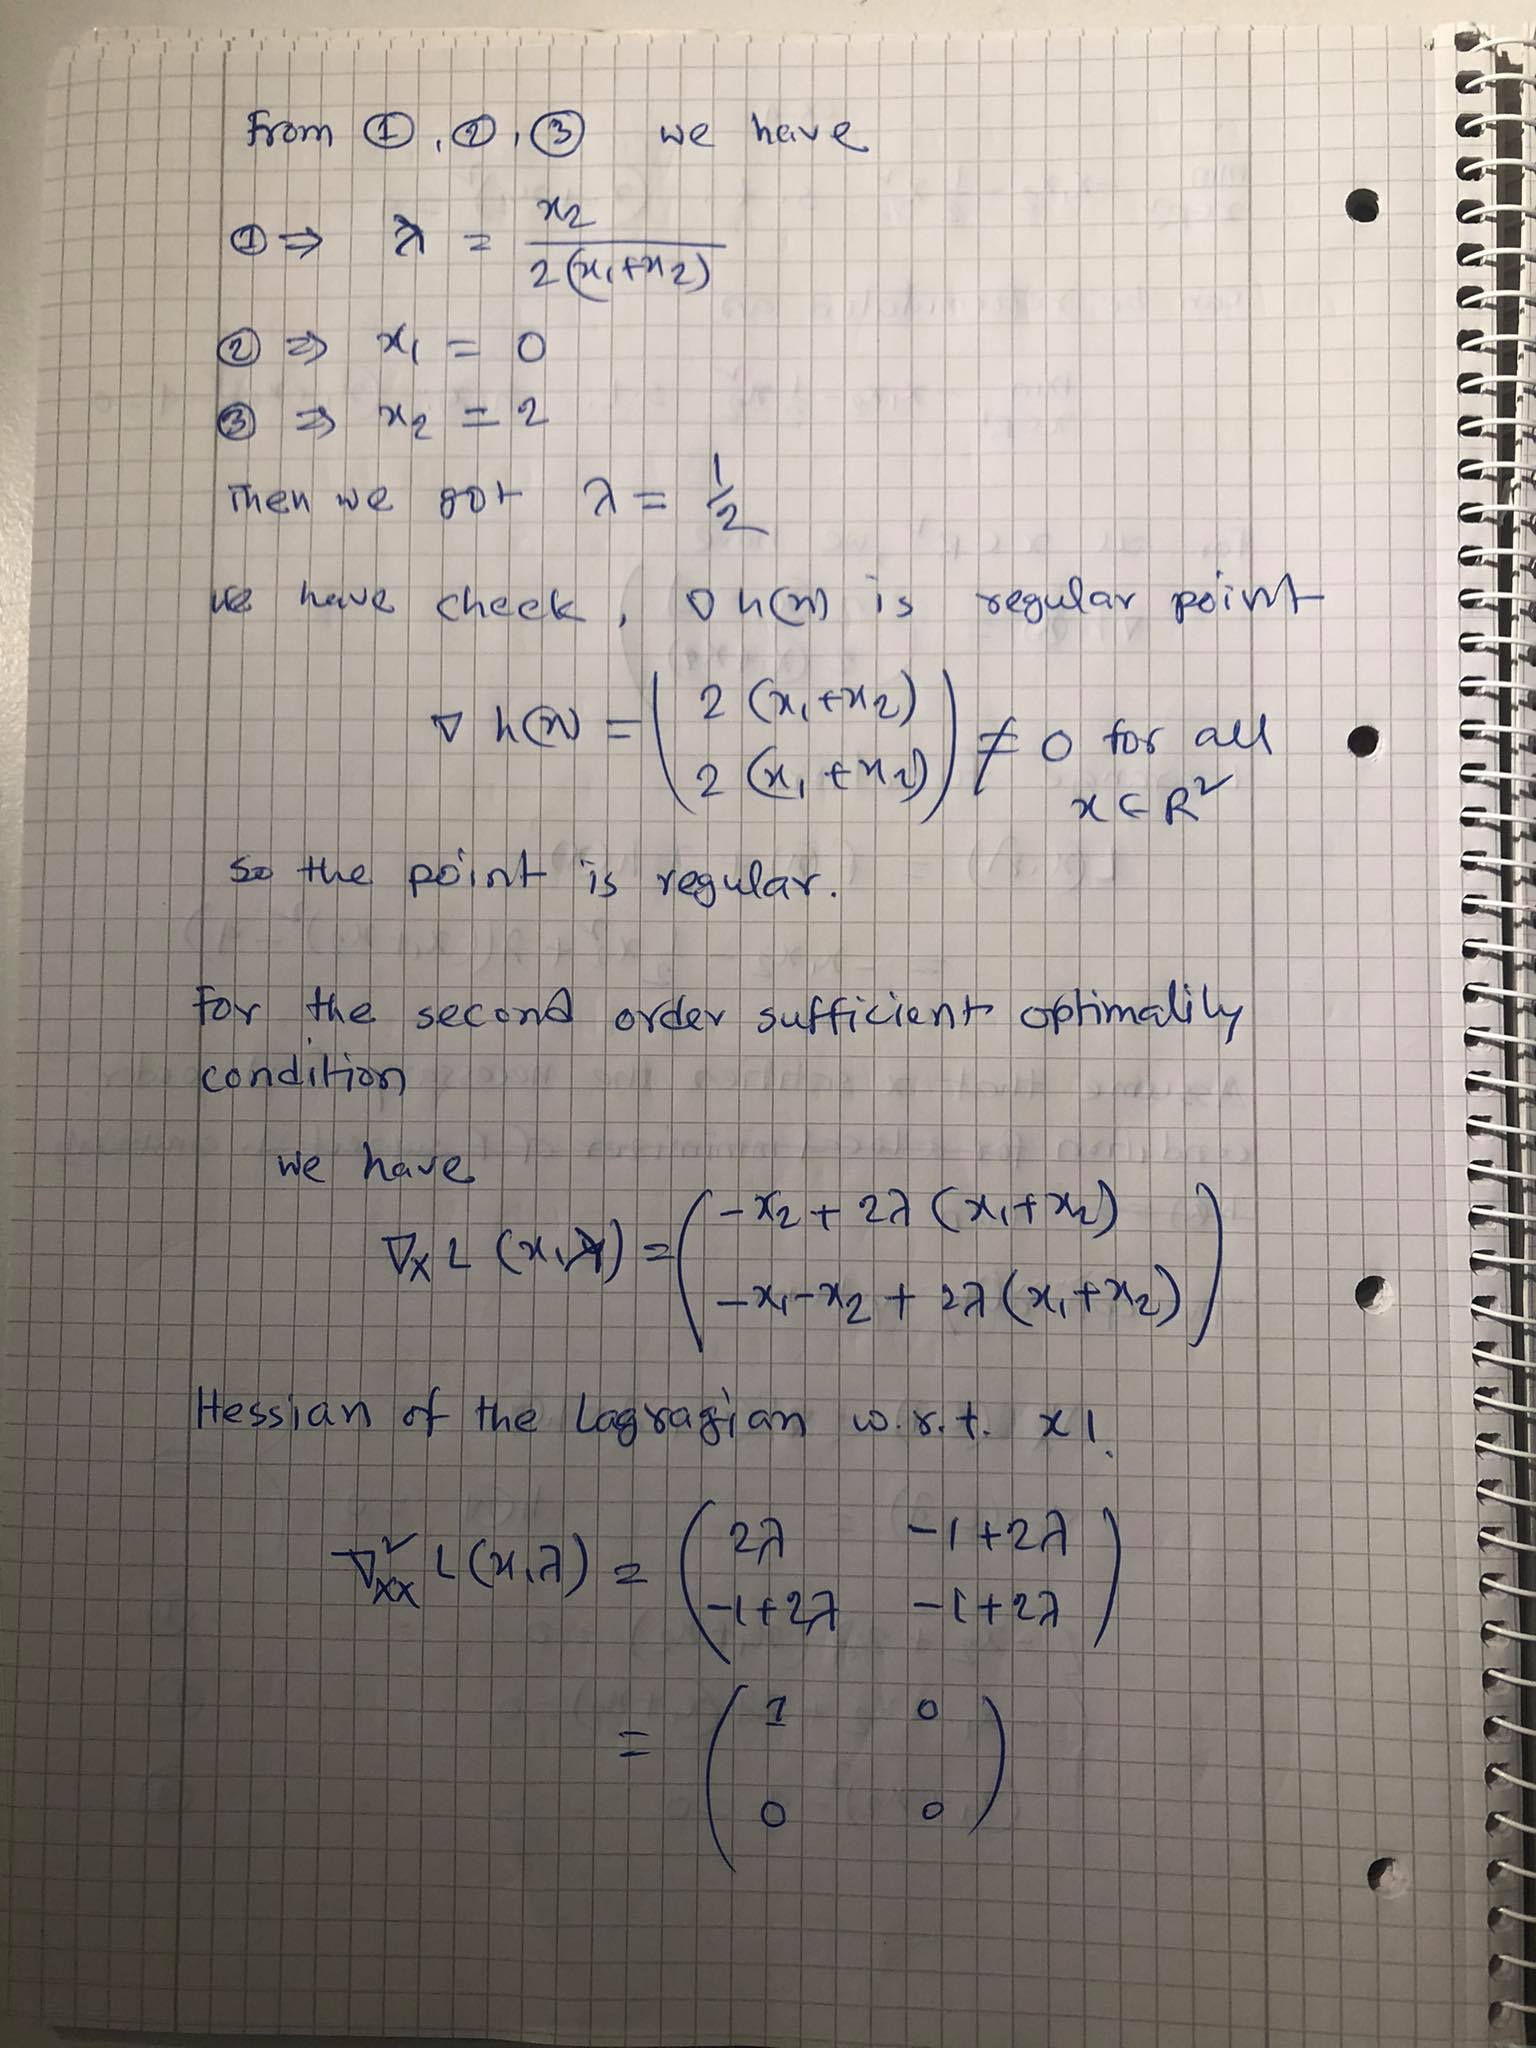 From ①, ②, ③ we have
① ⇒ λ = x₂ / 2(x₁+x₂)
② ⇒ x₁ = 0
③ ⇒ x₂ = 2
Then we got λ = 1/2
we have check, ∇h(x) is regular point
∇h(x) = ( 2(x₁+x₂) 
2(x₁+x₂) ) ≠ 0 for all
x ∈ R²
so the point is regular.
For the second order sufficient optimality
condition
we have
∇ₓ L(x,λ) = ( -x₂ + 2λ(x₁+x₂)
-x₁-x₂ + 2λ(x₁+x₂) )
Hessian of the Lagragian w.r.t. x!
∇²ₓₓ L(x,λ) = ( 2λ -1+2λ
-1+2λ -1+2λ )
= ( 1 0
0 0 )